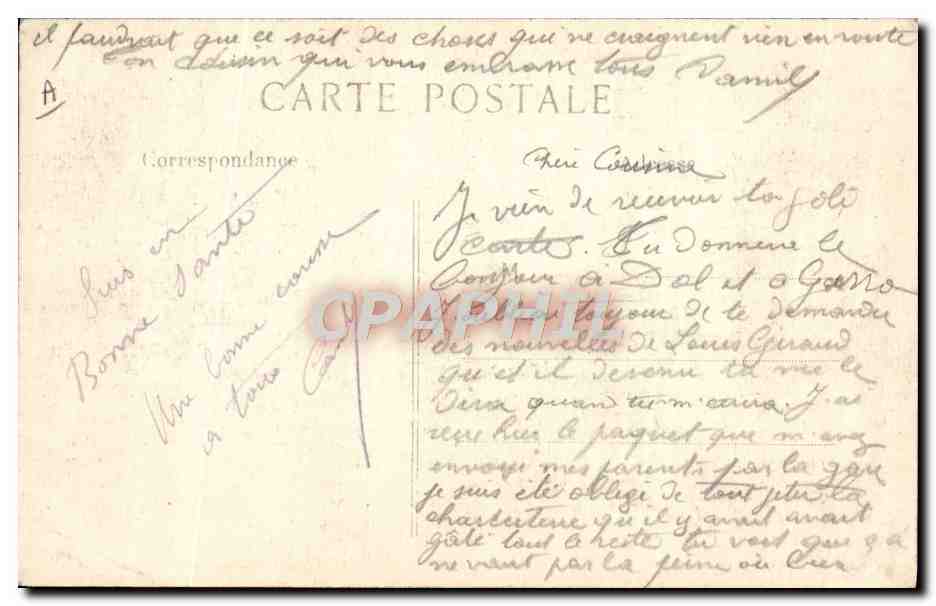 il faudrait que ce soit des choses qui ne craignent rien en route
ton cousin qui vous embrasse tous
A
CARTE POSTALE
Correspondance
Adresse
chère Cousine
Je vien de recevoir ta joli
carte. Tu donnera le
bonjour à Dol et a
J'oublier toujour de te demander
des nouvelles de Louis Giraud
qu'et il devenu tu me le
dira quan tu m'écrira. J'ai
reçu hier le paquet que m'avez
envoyé mes parents par la gare
je suis été obligé de tout jeter la
charcuterie qu'il y avait avait
gâté tout le reste tu vois que ça
ne vaut pas la peine ou bien
Suis en
Bonne Santé
Une bonne
a tous
CPAPHIL